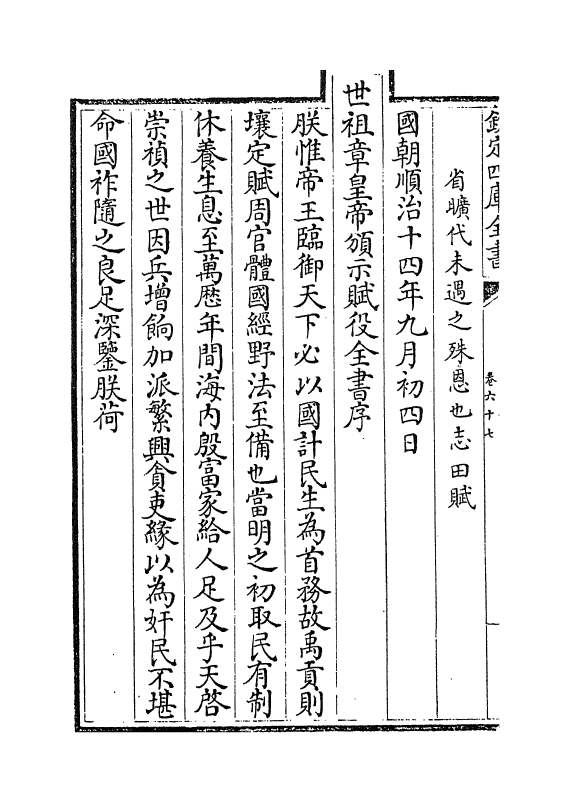 欽定四庫全書
卷六十七
省曠代未遇之殊恩也志田賦
國朝順治十四年九月初四日
世祖章皇帝頒示賦役全書序
朕惟帝王臨御天下必以國計民生為首務故禹貢則
壤定賦周官體國經野法至備也當明之初取民有制
休養生息至萬厯年間海内殷富家給人足及乎天啓
崇禎之世因兵增餉加派繁興貪吏緣以為奸民不堪
命國祚隨之良足深鑒朕荷